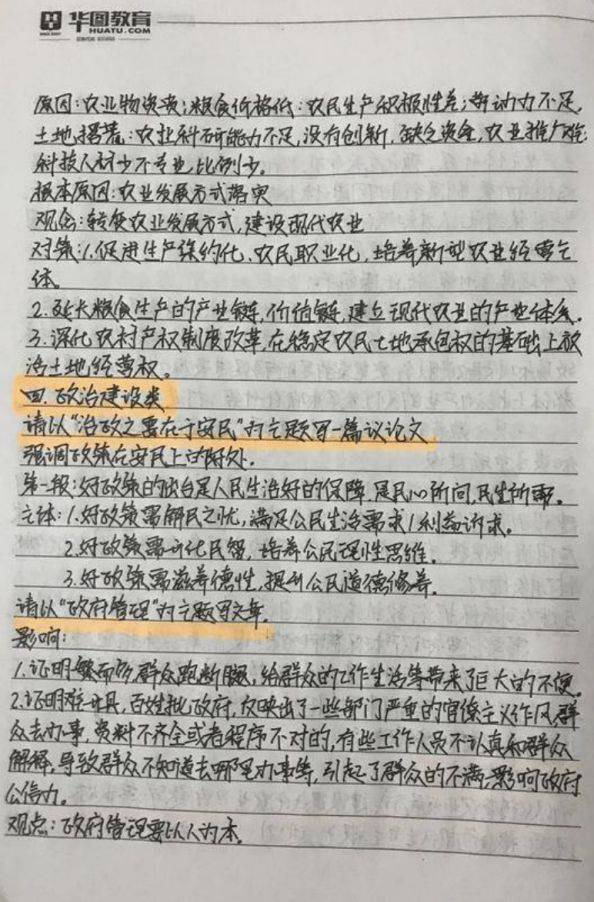 华图教育
HUATU.COM
原因:农业物资贵;粮食价格低:农民生产积极性差;劳动力不足,
土地撂荒:农业科研能力不足,没有创新,缺乏资金,农业推广难:
科技人材少不专业,比例少。
根本原因:农业发展方式落实
观念:转变农业发展方式,建设现代农业
对策:1.促进生产集约化、农民职业化,培养新型农业经营主
体。
2.延长粮食生产的产业链,价值链,建立现代农业的产业体系。
3.深化农村产权制度改革,在稳定农民土地承包权的基础上放
活土地经营权。
四.政治建设类
请以“治政之要在于安民”为主题写一篇议论文
强调政策在安民上的好处.
第一段:好政策的出台是人民生活好的保障,是民心所向,民生所幸。
主体:1.好政策需解民之忧,满足公民生活需求/利益诉求。
2.好政策需开化民智,培养公民理性思维.
3.好政策需滋养德性,提升公民道德修养。
请以“政府管理”为主题写文章.
影响:
1.证明繁而多,群众跑断腿,给群众的工作生活等带来了巨大的不便。
2.证明难开具,百姓批政府,反映出了一些部门严重的官僚主义作风,群
众去办事,资料不齐全或者程序不对的,有些工作人员不认真和群众
解释,导致群众不知道去哪里办事等,引起了群众的不满,影响政府
公信力。
观点:政府管理要以人为本.